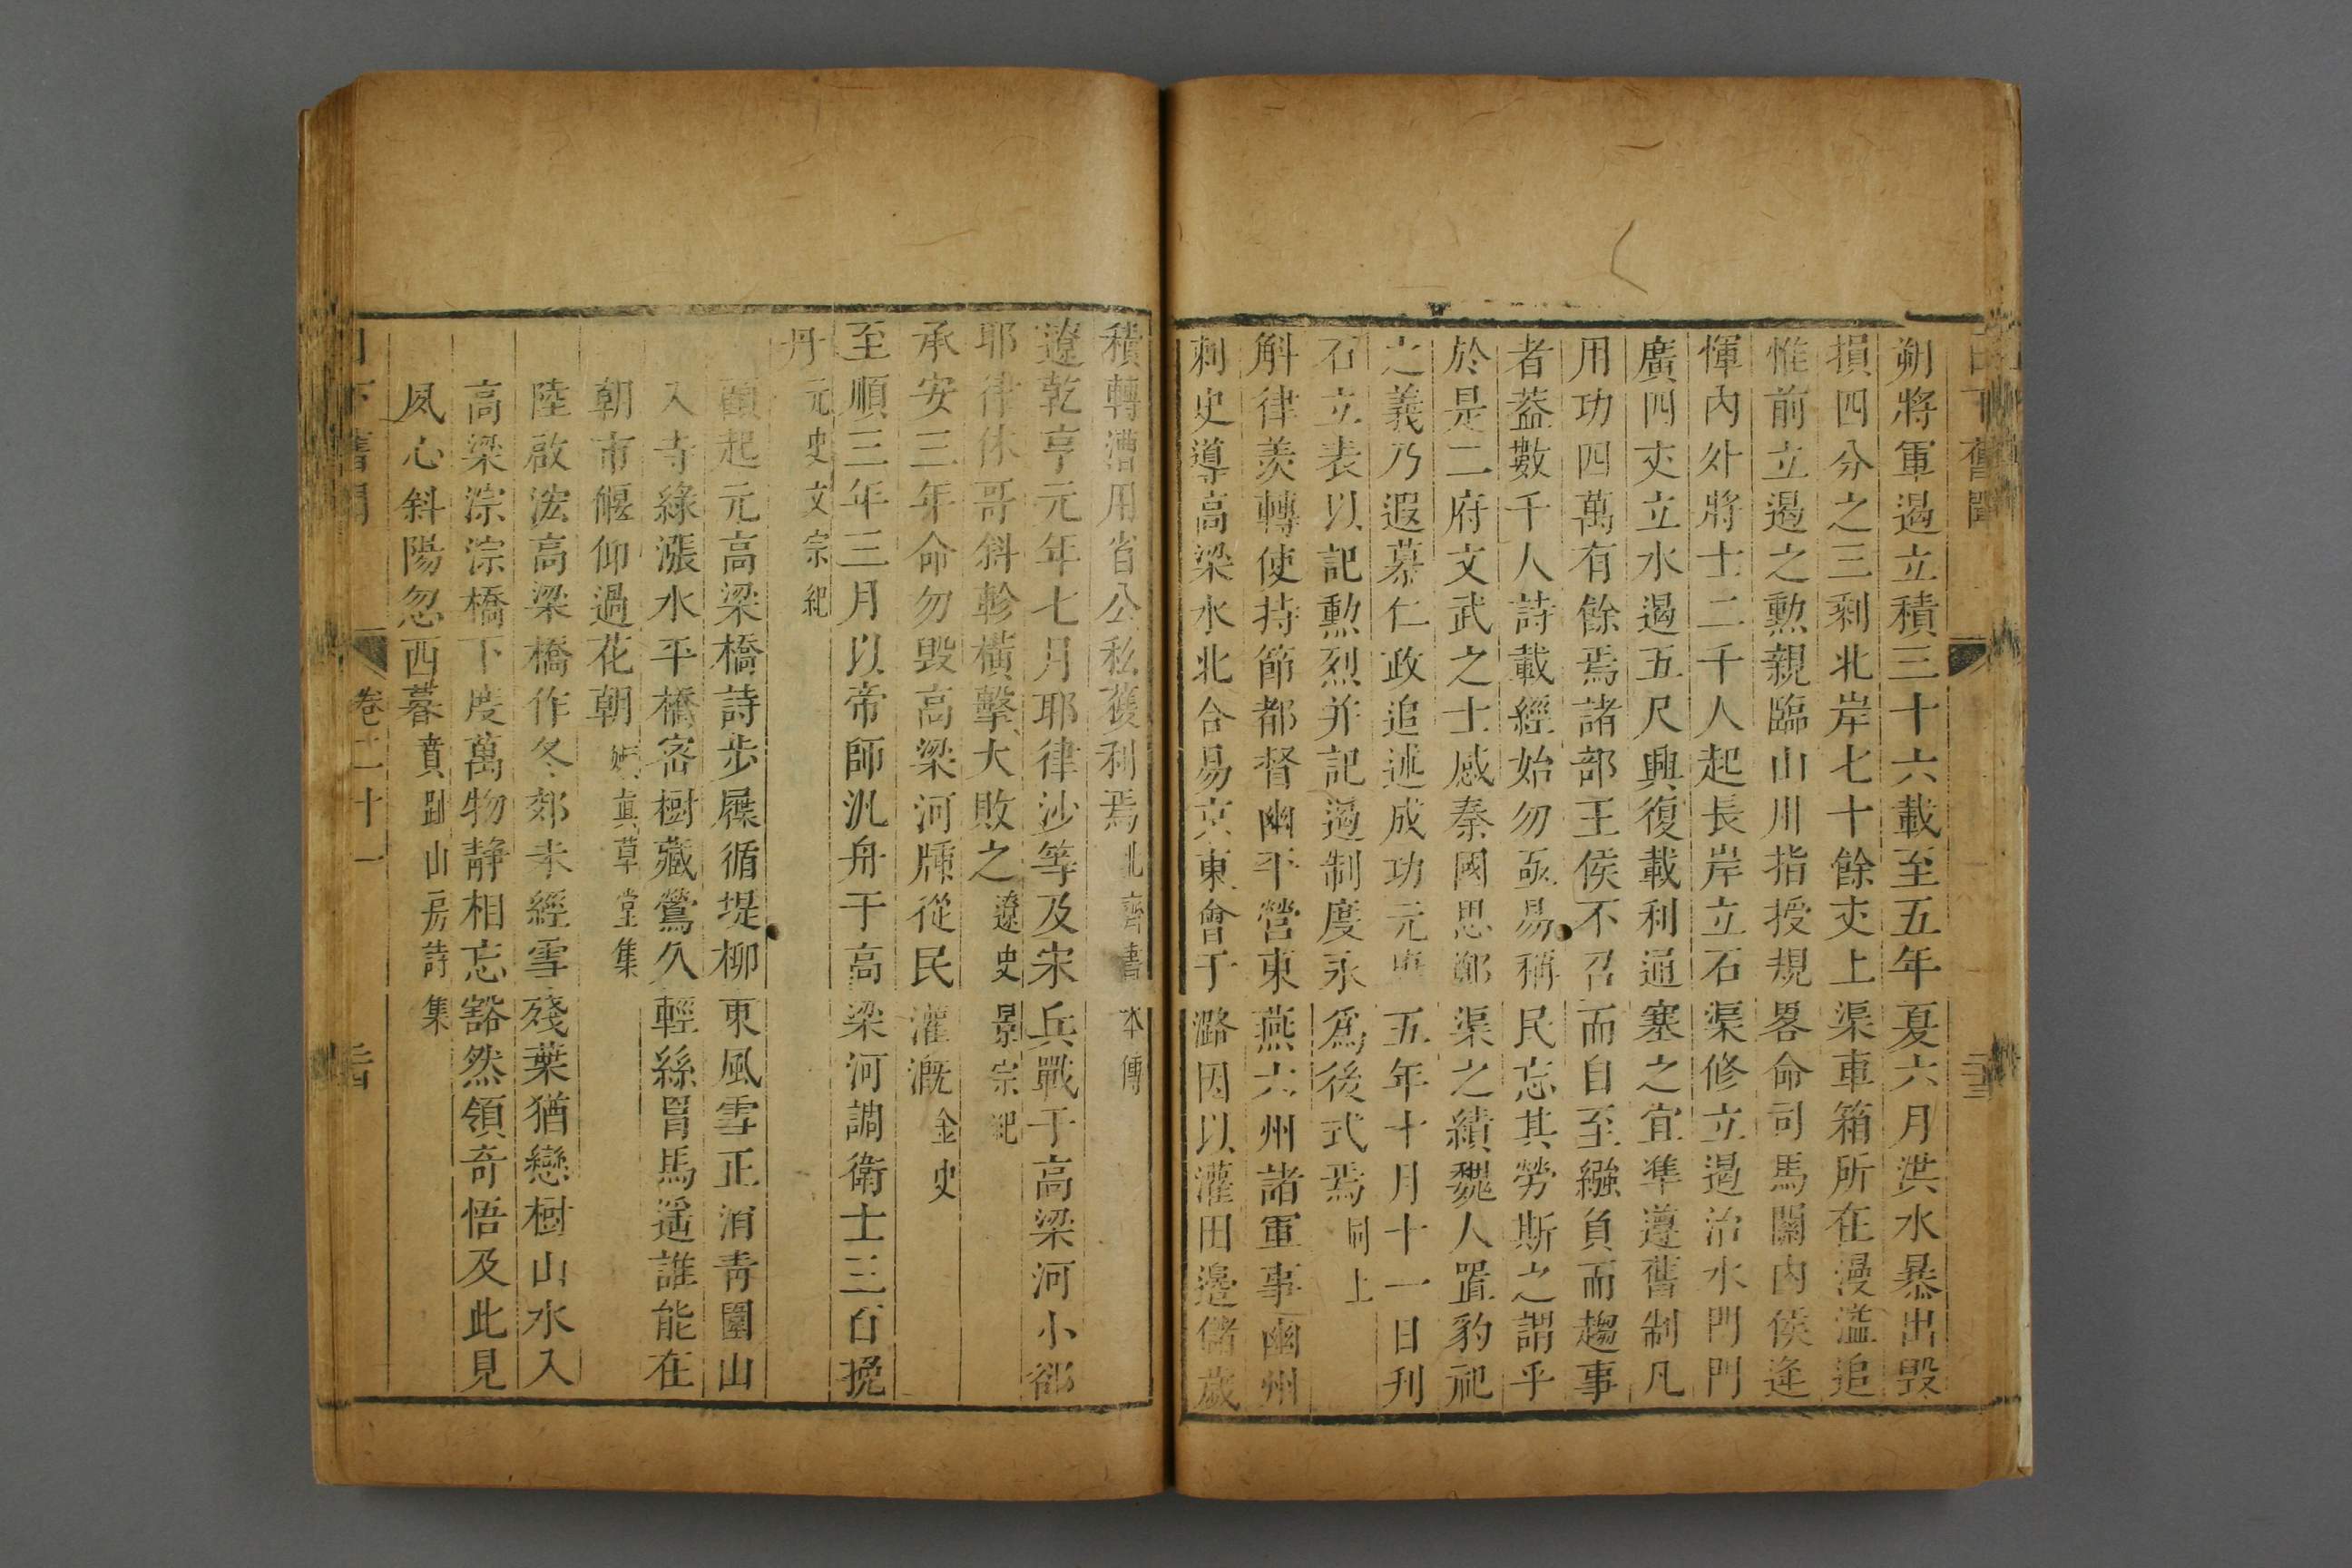 日下舊聞
朔將軍遏立積三十六載至五年夏六月洪水暴出毀
損四分之三剩北岸七十餘丈上渠車箱所在漫溢追
惟前立遏之勲親臨山川指授規畧命司馬關內侯逄
惲內外將士二千人起長岸立石渠修立遏治水門門
廣四丈立水遏五尺興復載利通塞之宜凖遵舊制凡
用功四萬有餘焉諸部王侯不召而自至繈負而趨事
者葢數千人詩載經始勿亟易稱民忘其勞斯之謂乎
於是二府文武之士感秦國思鄭渠之績魏人置豹祀
之義乃遐慕仁政追述成功元康五年十月十一日刊
石立表以記勲烈并記遏制度永爲後式焉同上
斛律羨轉使持節都督幽平營東燕六州諸軍事幽州
刺史導高梁水北合易京東會于潞因以灌田邊儲歲
積轉漕用省公私獲利焉北齊書本傳
遼乾亨元年七月耶律沙等及宋兵戰于高梁河小郤
耶律休哥斜軫橫擊大敗之遼史景宗紀
承安三年命勿毀高梁河牐從民灌溉金史
至順三年三月以帝師汎舟于高梁河調衛士三百挽
舟元史文宗紀
顧起元高梁橋詩步屧循堤柳東風雪正消靑圍山
入寺綠漲水平橋密樹藏鶯久輕絲罥馬遥誰能在
朝市偃仰過花朝嬾真草堂集
陸啟浤高梁橋作冬郊未經雪殘葉猶戀樹山水入
高梁淙淙橋下度萬物静相忘豁然領奇悟及此見
夙心斜陽忽西暮賁趾山房詩集
日下舊聞 卷二十一 二十四